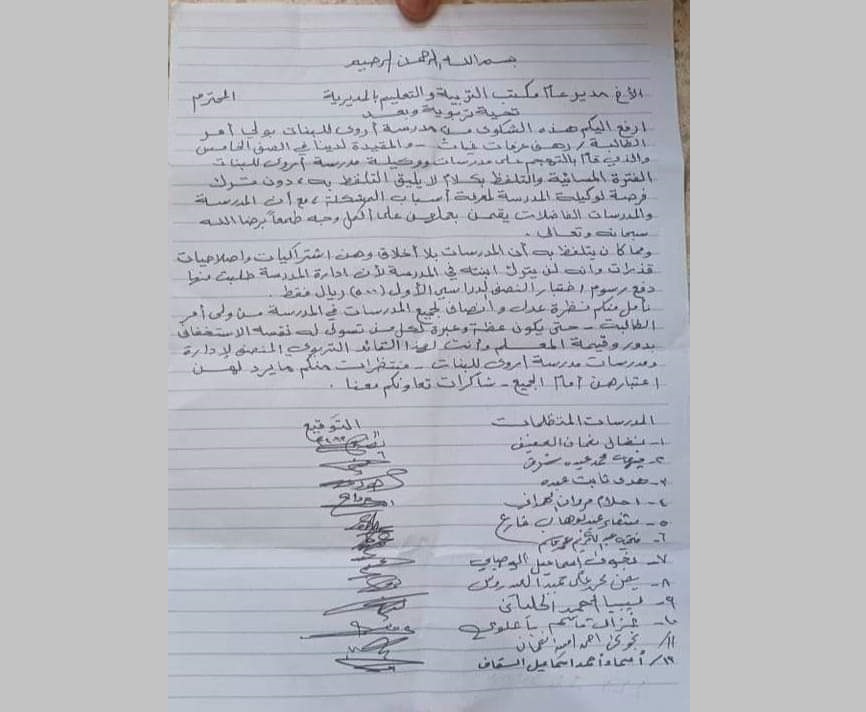 بسم الله الرحمن الرحيم
الأخ مدير عام مكتب التربية والتعليم بالمديرية المحترم
تحية تربوية وبعد
ارفع اليكم هذه الشكوى من مدرسة أروى للبنات بولي أمر
الطالبة / رهف عرفات غياث - والمقيدة لدينا في الصف الخامس
والذي قام بالتهجم على مدرسات ووكيلة مدرسة أروى للبنات
الفترة المسائية والتلفظ بكلام لا يليق التلفظ به، دون ترك
فرصة لوكيلة المدرسة لمعرفة أسباب المشكلة، مع أن المدرسة
والمدرسات الفاضلات يقمن بعملهن على أكمل وجه طمعاً برضا الله
سبحانه وتعالى.
ومما كان يتلفظ به أن المدرسات بلا أخلاق وهن اشتراكيات واصلاحيات
قذرات وانه لن يترك ابنته في المدرسة لأن ادارة المدرسة طلبت منها
دفع رسوم اختبار النصف الدراسي الأول (٥٠٠) ريال فقط.
نأمل منكم نظرة عدل وانصاف لجميع المدرسات في المدرسة من ولي أمر
الطالبة - حتى يكون عظة وعبرة لكل من تسول له نفسه الاستخفاف
بدور وقيمة المعلم وأنت لهذا القائد التربوي المنصف لإدارة
ومدرسات مدرسة أروى للبنات - منتظرات منكم ما يرد لهن
اعتبارهن أمام الجميع - شاكرات تعاونكم معنا.
المدرسات المتظلمات التوقيع
١- نضال نعمان
٢- محمد عبده
٣- هدى ثابت عبده
٤- احلام مروان
٥- عبدالوهاب فارع
٦- فتحيه عبدالكريم
٧- اسماعيل الوصابي
٨- يمن
٩- ليبيا أحمد
١٠- غزال قاسم باعلوي
١١/ نجوى احمد امين نعمان
١٢/ أسماء أحمد اسماعيل السقاف